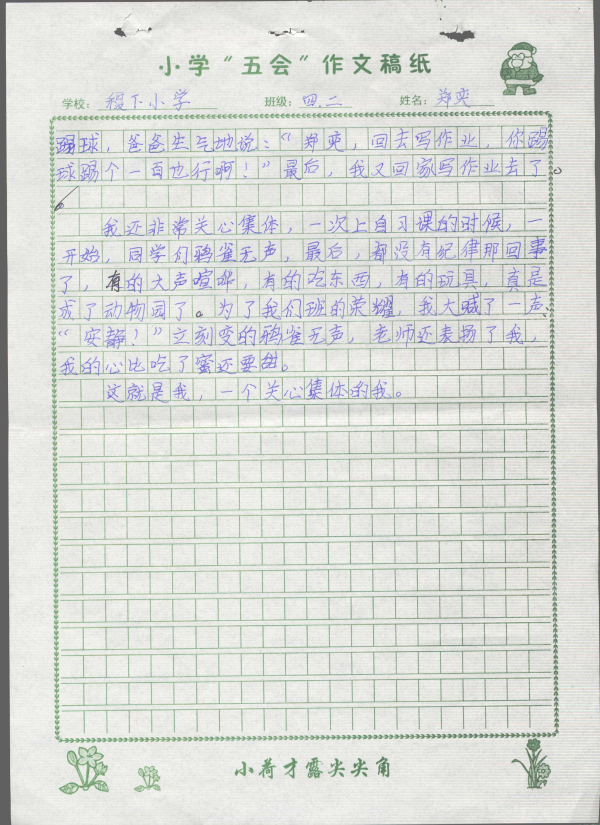 小学“五会”作文稿纸
学校：稷下小学 班级：四.二 姓名：郑奕
踢球，爸爸生气地说：“郑奕，回去写作业，你踢
球踢个一百也行啊！”最后，我又回家写作业去了。
我还非常关心集体，一次上自习课的时候，一
开始，同学们鸦雀无声，最后，都没有纪律那回事
了，有的大声喧哗，有的吃东西，有的玩具，真是
成了动物园了。为了我们班的荣耀，我大喊了一声、
“安静！”立刻变的鸦雀无声，老师还表扬了我，
我的心比吃了蜜还要甜。
这就是我，一个关心集体的我。
小荷才露尖尖角